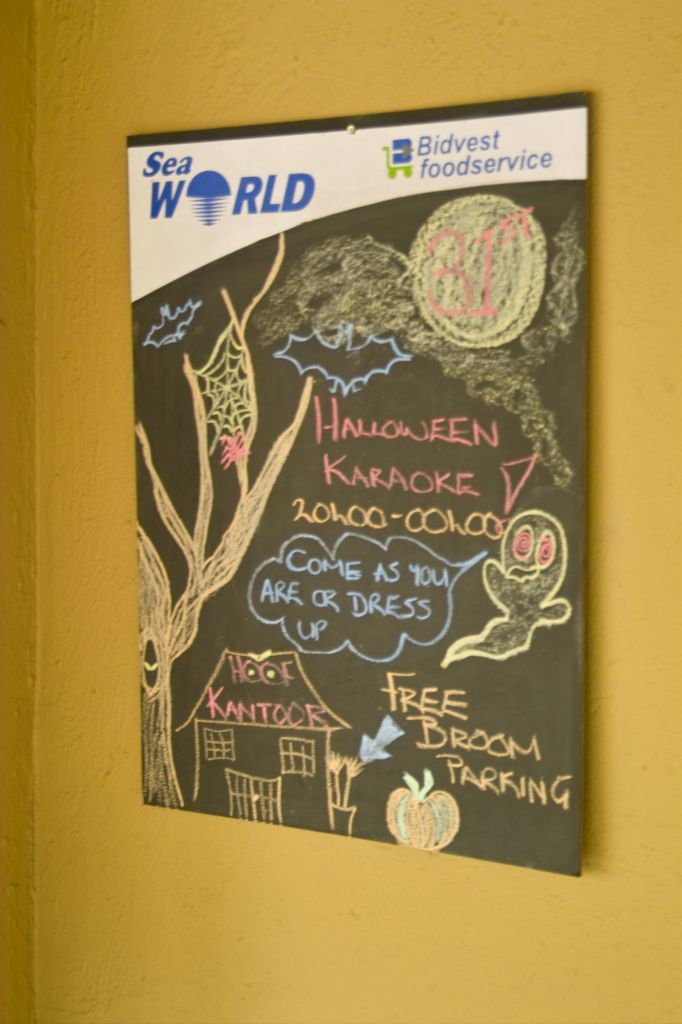 Sea
WORLD
Bidvest
foodservice
31ST
HALLOWEEN
KARAOKE
20h00-00h00
COME AS YOU
ARE OR DRESS
UP
HOOF
KANTOOR
FREE
BROOM
PARKING